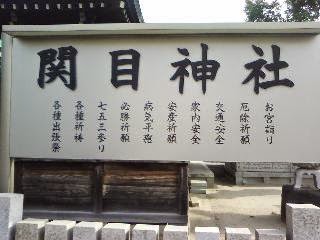 関目神社
お宮詣り
厄除祈願
交通安全
家内安全
安産祈願
病気平癒
必勝祈願
七五三参り
各種祈祷
各種出張祭